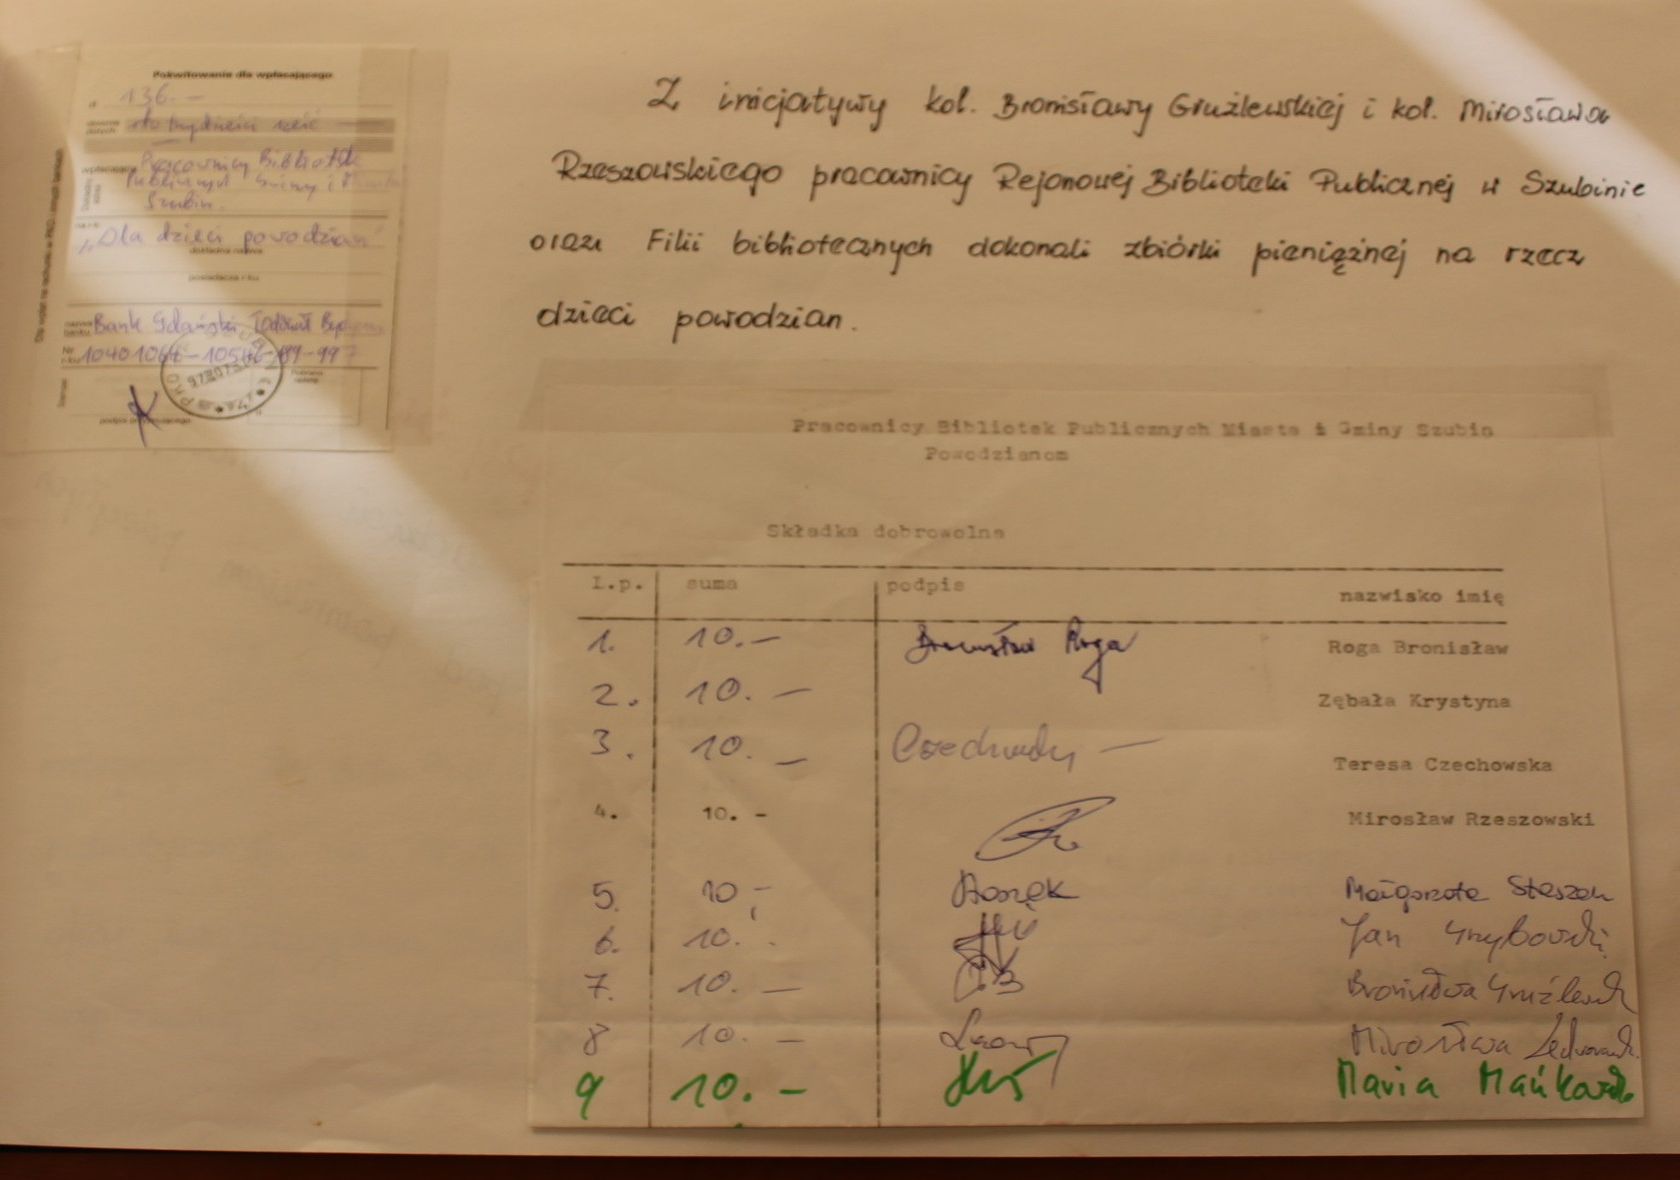 Pokwitowanie dla wpłacającego
zł 136.-
słownie sto trzydzieści sześć
złotych
wpłacający Pracownicy Bibliotek
Publicznych Gminy i Miasta
Szubin.
„Dla dzieci powodzian"
dokładna nazwa
posiadacza r-ku
nazwa banku Bank Gdański, Toddział Bydgoszcz
Nr r-ku 10401064-
podpis przyjmującego
Pobrano opłatę
Z inicjatywy kol. Bronisławy Gruźlewskiej i kol. Mirosława
Rzeszowskiego pracownicy Rejonowej Biblioteki Publicznej w Szubinie
oraz Filii bibliotecznych dokonali zbiórki pieniężnej na rzecz
dzieci powodzian.
Pracownicy Bibliotek Publicznych Miasta i Gminy Szubin
Powodzianom
Składka dobrowolna
L.p. suma podpis nazwisko imię
1. 10.- Bronisław Roga Roga Bronisław
2. 10.- Zębała Krystyna
3. 10.- Teresa Czechowska
4. 10.- Mirosław Rzeszowski
5. 10,- Małgorzata Staszak
6. 10. Jan Grybowski
7. 10.- Bronisława Gruźlewsk
8 10.- Mirosława
9 10.- Maria Mańkowsk